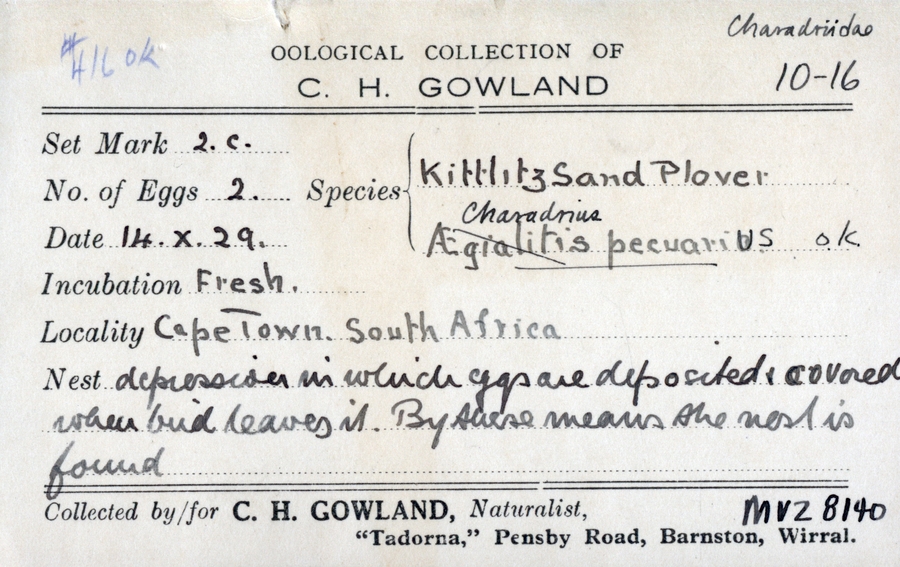 Charadriidae
#416 ok
OOLOGICAL COLLECTION OF
10-16
C. H. GOWLAND
Set Mark 2. c.
No. of Eggs 2. Species Kittlitz Sand Plover
Charadrius
Date 14. X. 29. Ægialitis pecuarius ok
Incubation Fresh.
Locality Cape Town. South Africa
Nest depression in which eggs are deposited & covered
when bird leaves it. By these means the nest is
found
Collected by/for C. H. GOWLAND, Naturalist,
MVZ 8140
"Tadorna," Pensby Road, Barnston, Wirral.